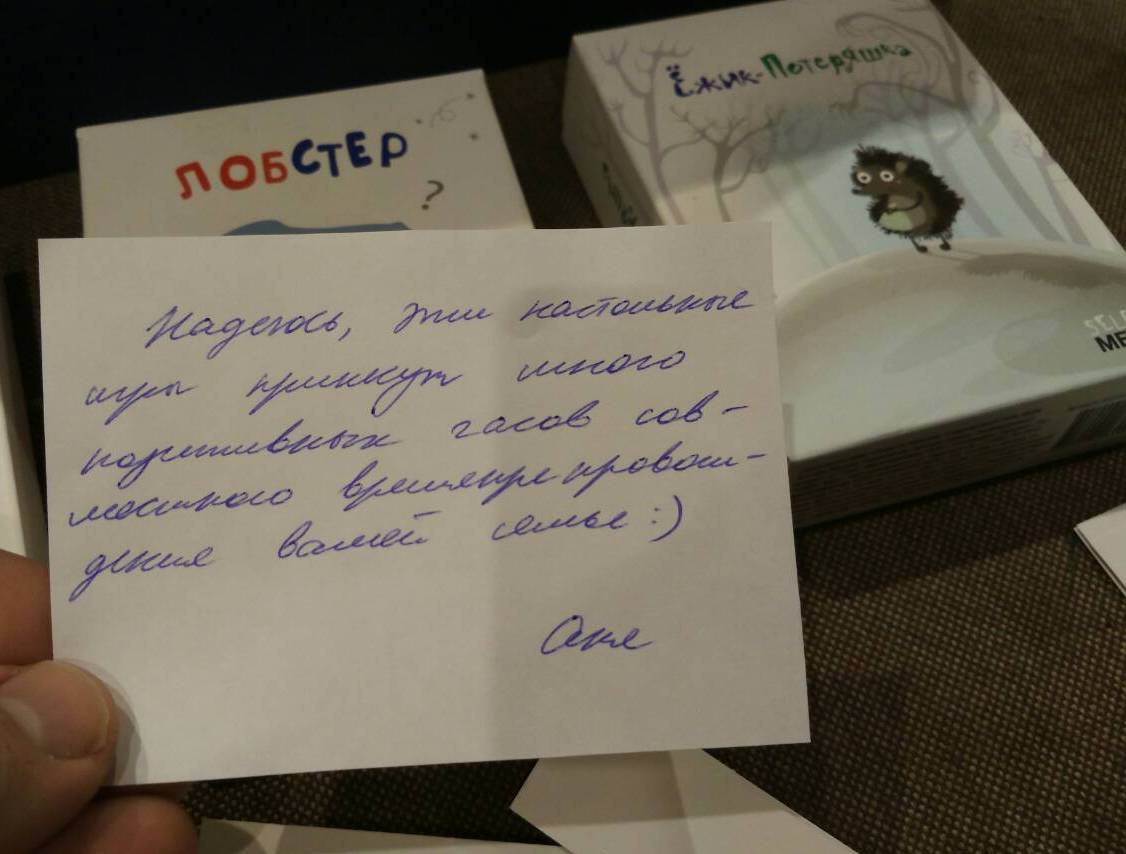 ЛОБСТЕР
?
Ёжик-Потеряшка
Надеюсь, эти настольные
игры принесут много
позитивных часов сов-
местного времяпрепровож-
дения вашей семье :)
Аня